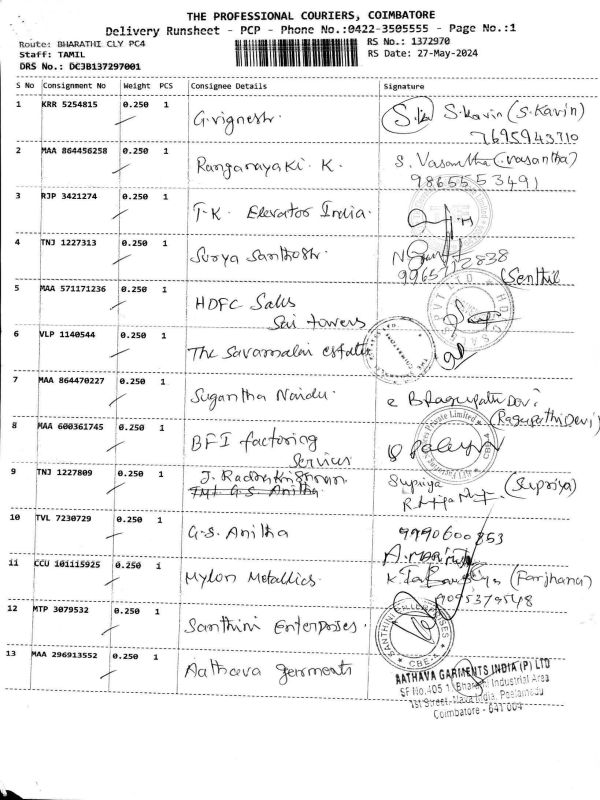 THE PROFESSIONAL COURIERS, COIMBATORE
Delivery Runsheet - PCP - Phone No.:0422-3505555 - Page No.:1
Route: BHARATHI CLY PC4
RS No.: 1372970
Staff: TAMIL
RS Date: 27-May-2024
DRS No.: DCJB137297001
S No Consignment No Weight PCS Consignee Details Signature
1 KRR 5254815 0.250 1 G.vignesh. S. Kavin (S.Kavin)
7695943310
2 MAA 864456258 0.250 1 Ranganayaki. K. S. Vasantha (vasantha)
9865553491
3 RJP 3421274 0.250 1 T.K. Elevator India.
4 TNJ 1227313 0.250 1 Surya Santhosh.
(Senthil
5 MAA 571171236 0.250 1 HDFC Sales
Sai towers
6 VLP 1140544 0.250 1 The Savamalai estate
7 MAA 864470227 0.250 1 Sugantha Naidu. Bhagupathi Devi
(Ragupathi Devi)
8 MAA 600361745 0.250 1 BFI factoring
Services
9 TNJ 1227809 0.250 1 J. Radhakrishnan Supriya (Supriya)
G.S. Anitha
10 TVL 7230729 0.250 1 G.S. Anitha 9990600853
11 CCU 101115925 0.250 1 Mylon Metallics. (Farjhana)
9095379548
12 MTP 3079532 0.250 1 Santhini Enterprises. SANTHINI ENTERPRISES
CBE-4
13 MAA 296913552 0.250 1 Aathava garments AATHAVA GARMENTS INDIA (P) LTD
SF No.405 1, Bharathi Industrial Area
1st Street, Peelamedu
Coimbatore - 641 004